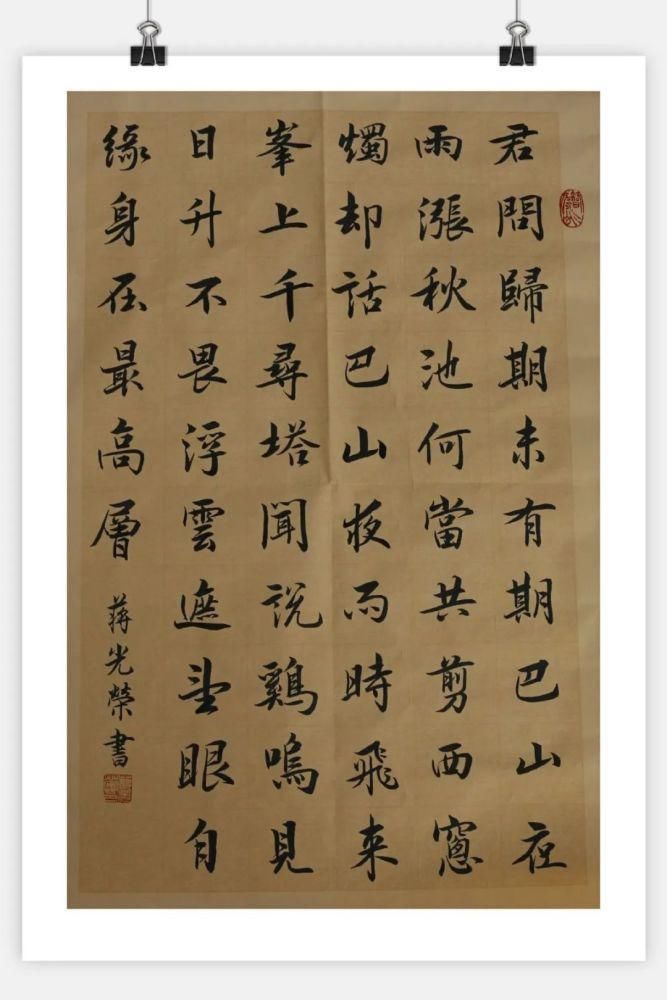 君問歸期未有期巴山夜
雨漲秋池何當共剪西窻
燭却話巴山夜雨時飛來
峯上千尋塔聞說鷄鳴見
日升不畏浮雲遮望眼自
緣身在最高層
蔣光榮書